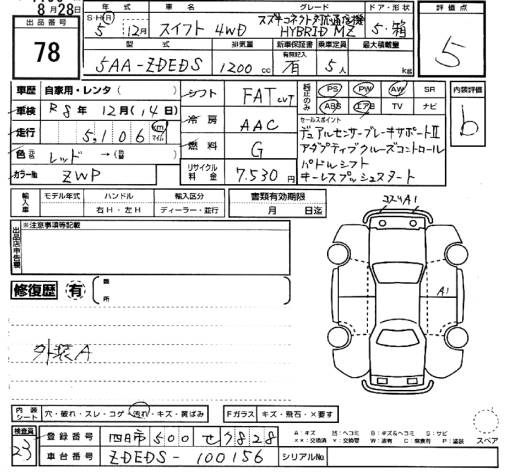 8月28日
出品番号
78
年
車名
グレード
ドア・形状
評価点
S・H・R
5年 12月
スイフト 4WD
スズキコネクト対応通信機
HYBRID MZ
5・箱
5
型式
排気量
新車保証書
乗車定員
最大積載量
有無記入
5AA-ZDEDS
1200cc
有
5人
kg
車歴
自家用・レンタ( )
シフト
FAT CVT
純正のみ
PS
PW
AW
SR
ABS
エアB
TV
ナビ
内装評価
b
車検
R8年12月(14日)
冷房
AAC
セールスポイント
デュアルセンサーブレーキサポートII
アダプティブクルーズコントロール
パドルシフト
キーレスプッシュスタート
走行
5,106
km
マイル
燃料
G
色
元色
レッド→(替)
リサイクル料金
7,530円
カラーNo
ZWP
輸入車
モデル年式
ハンドル
輸入区分
書類有効期限
右H・左H
ディーラー・並行
月 日迄
出品店申告欄
※注意事項等記載
A1
修復歴
有
箇所
外装A
内装シート
穴・破れ・スレ・コゲ・汚れ・キズ・黄ばみ
Fガラス
キズ・飛石・×要す
スペア
検査員
23
登録番号
四日市500せ7828
車台番号
ZDEDS-100156
シリアルNo.